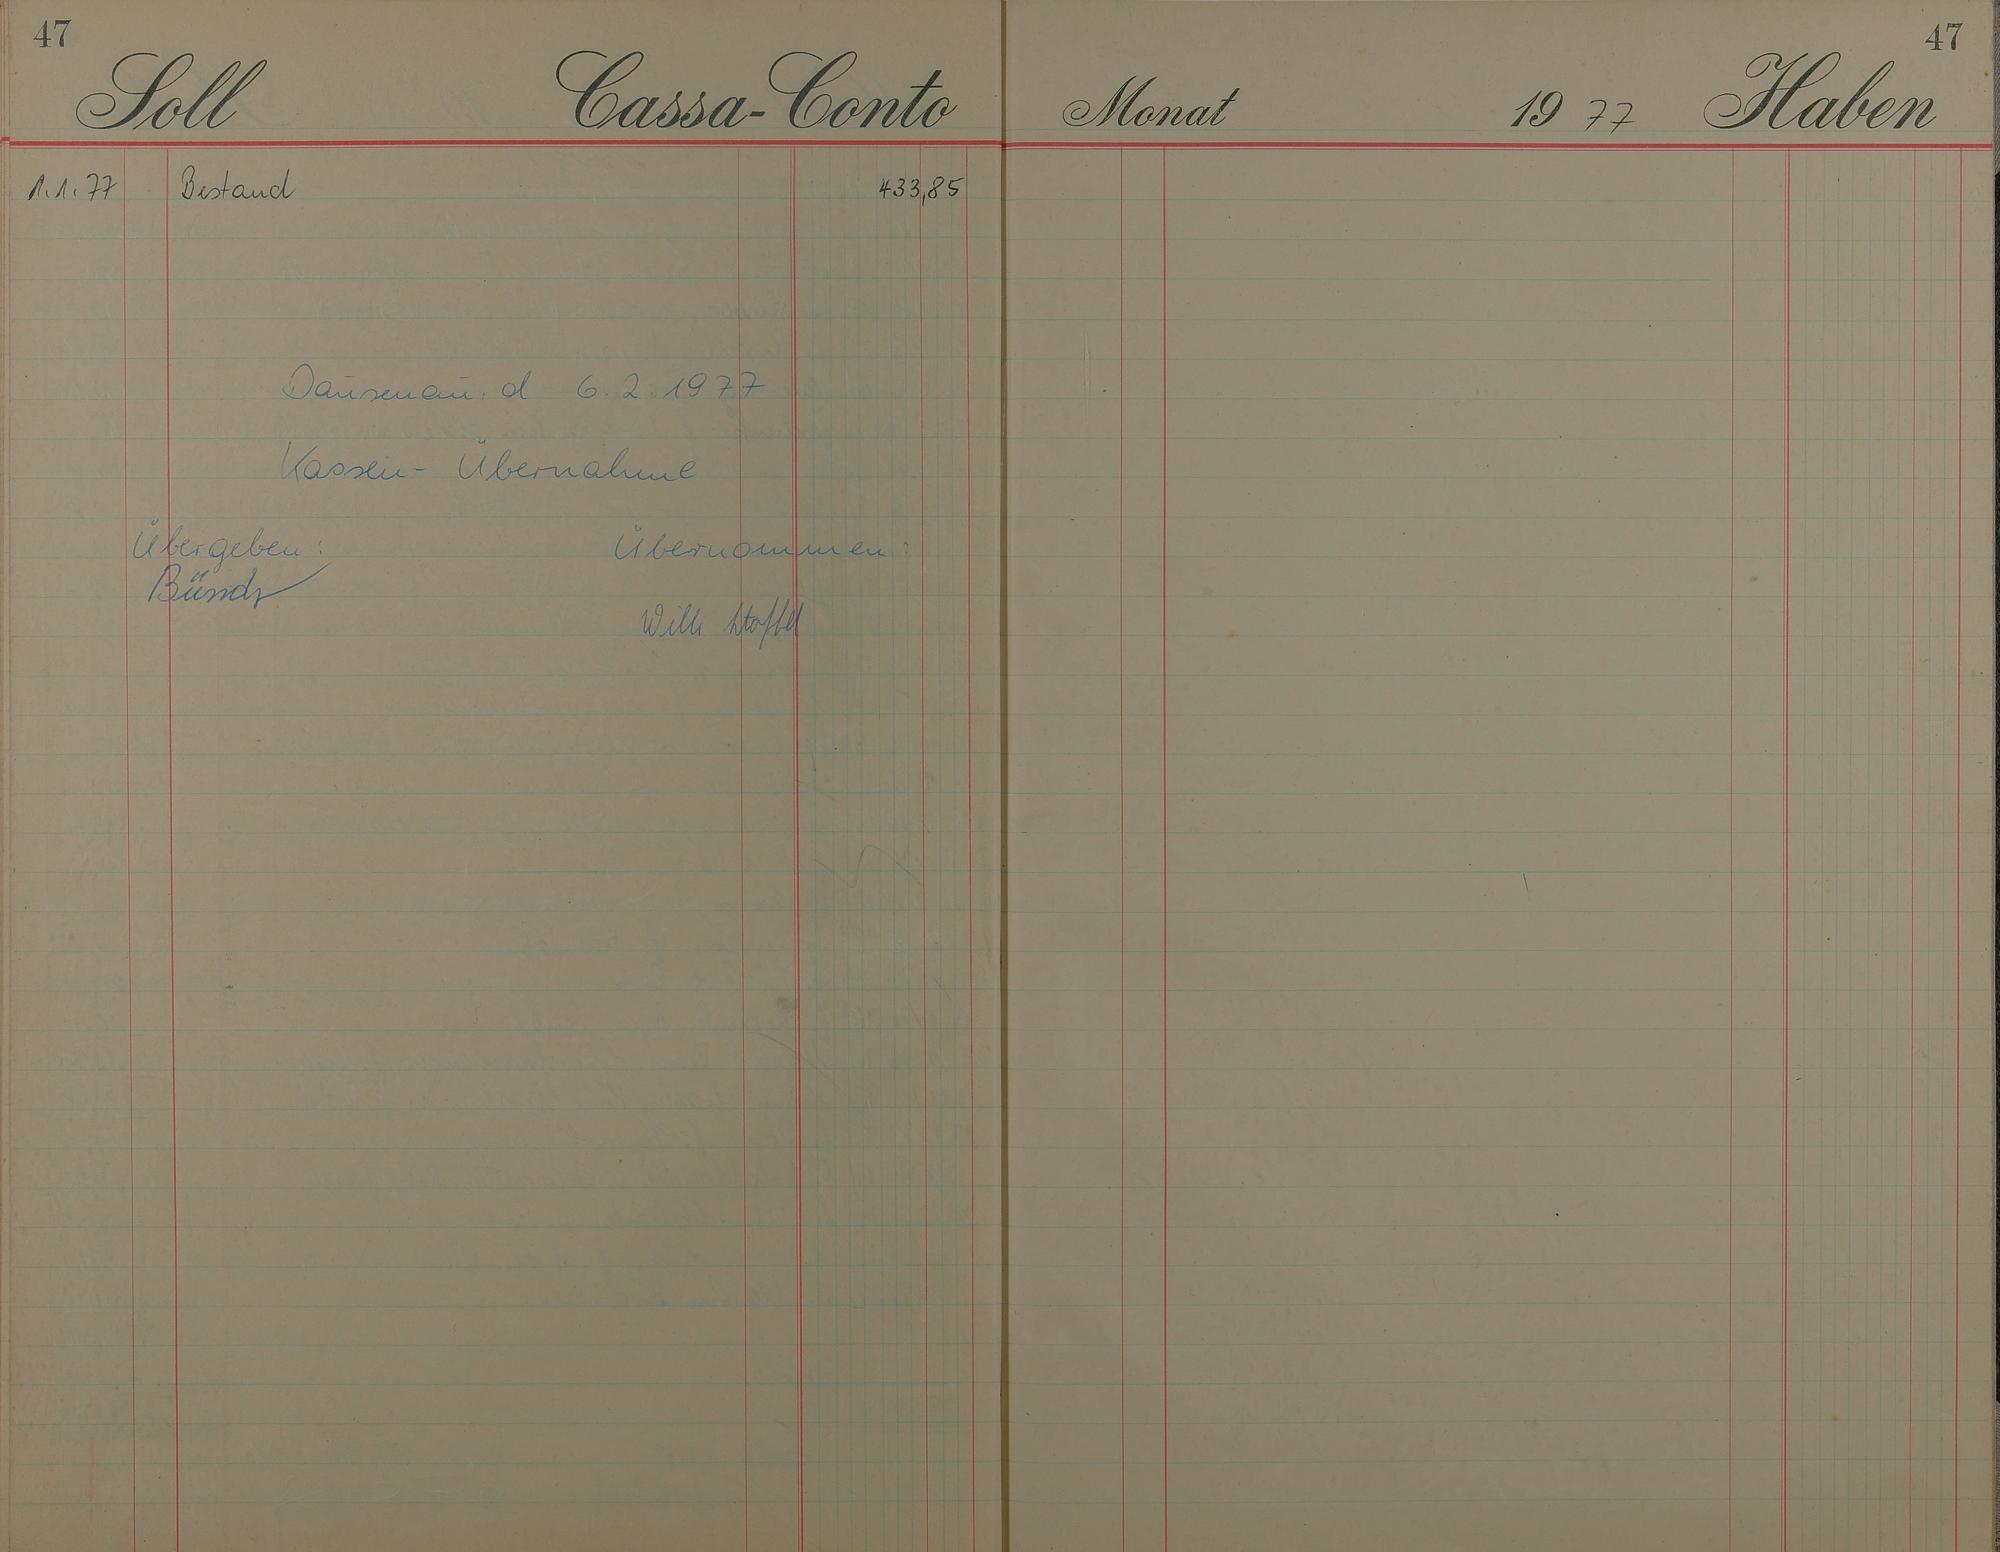 47
Soll Cassa-Conto
1.1.77 Bestand 433,85
Dausenau, d 6.2.1977
Kassen-Übernahme
Übergeben: Übernommen:
Willi
47
Monat 1977 Haben